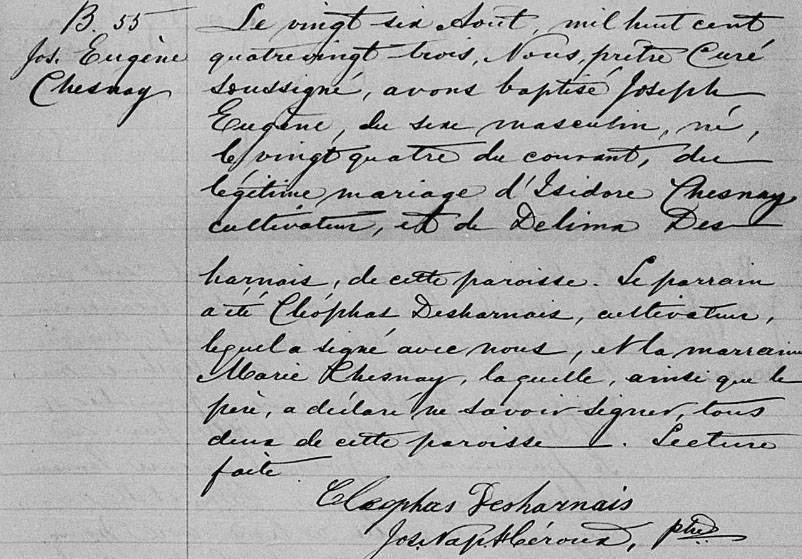 B. 55
Jos. Eugène
Chesnay
Le vingt six Août, mil huit cent
quatrevingt trois, Nous, prêtre Curé
soussigné, avons baptisé Joseph
Eugène, du sexe masculin, né,
le vingt quatre du courant, du
légitime mariage d'Isidore Chesnay
cultivateur, et de Delima Des-
harnais, de cette paroisse. Le parrain
a été Cléophas Desharnais, cultivateur,
lequel a signé avec nous, et la marraine
Marie Chesnay, laquelle, ainsi que le
père, a déclaré ne savoir signer, tous
deux de cette paroisse. Lecture
faite
Cleophas Desharnais
Jos. Nap. Héroux, ptre